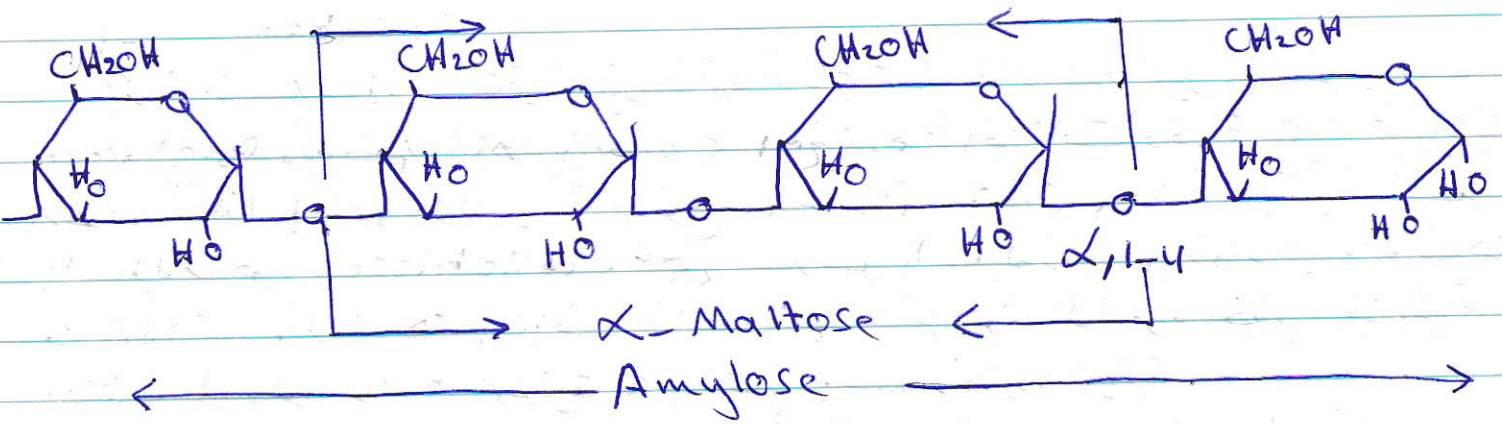 CH2OH CH2OH CH2OH CH2OH
O O O O
HO HO HO HO
HO
O O O
HO HO HO HO
α,1-4
α- Maltose
Amylose